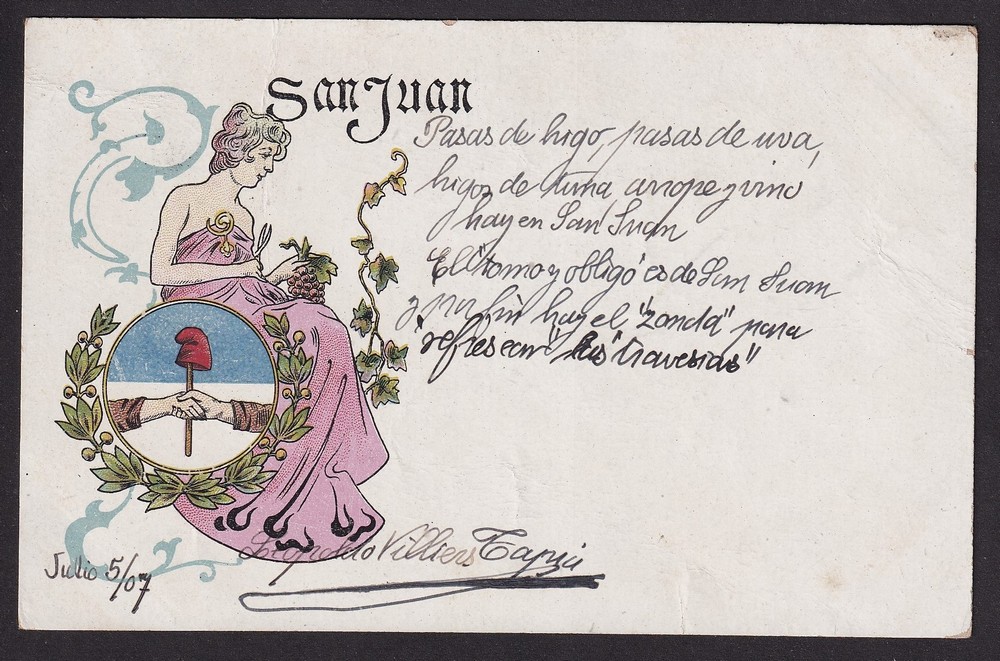 San Juan
Pasas de higo, pasas de uva,
higos de tuna arrope y vino
hay en San Juan
El "tomo y obligó es de San Juan
y por fin hay el "zonda" para
"refrescar" las "travesias"
Leopoldo Villiers Tapia
Julio 5/07